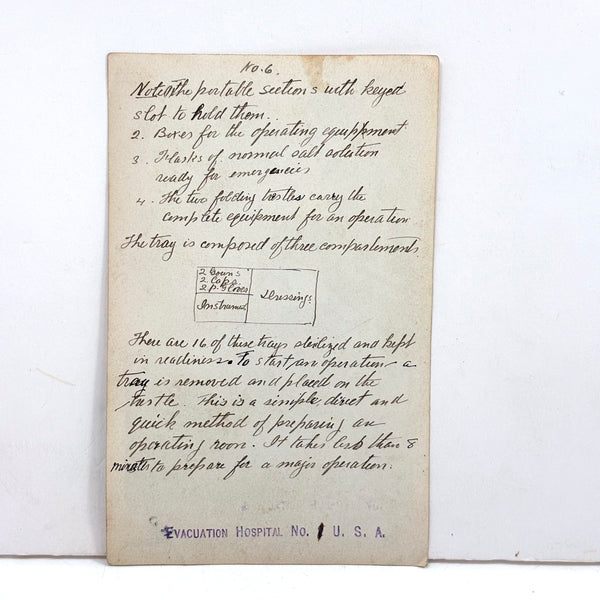 No. 6.
Note the portable sections with keyed
slot to hold them.
2. Boxes for the operating equippment
3. Flasks of normal salt solution
ready for emergencies
4. The two folding trestles carry the
complete equipment for an operation
The tray is composed of three compartements
2 Gowns
2 Caps
2 p. Gloves
Instrument
Dressings
There are 16 of these trays sterilized and kept
in readiness. To start an operation a
tray is removed and placed on the
trestle. This is a simple, direct and
quick method of preparing an
operating room. It takes less than 8
minutes to prepare for a major operation.
EVACUATION HOSPITAL NO. 1 U. S. A.